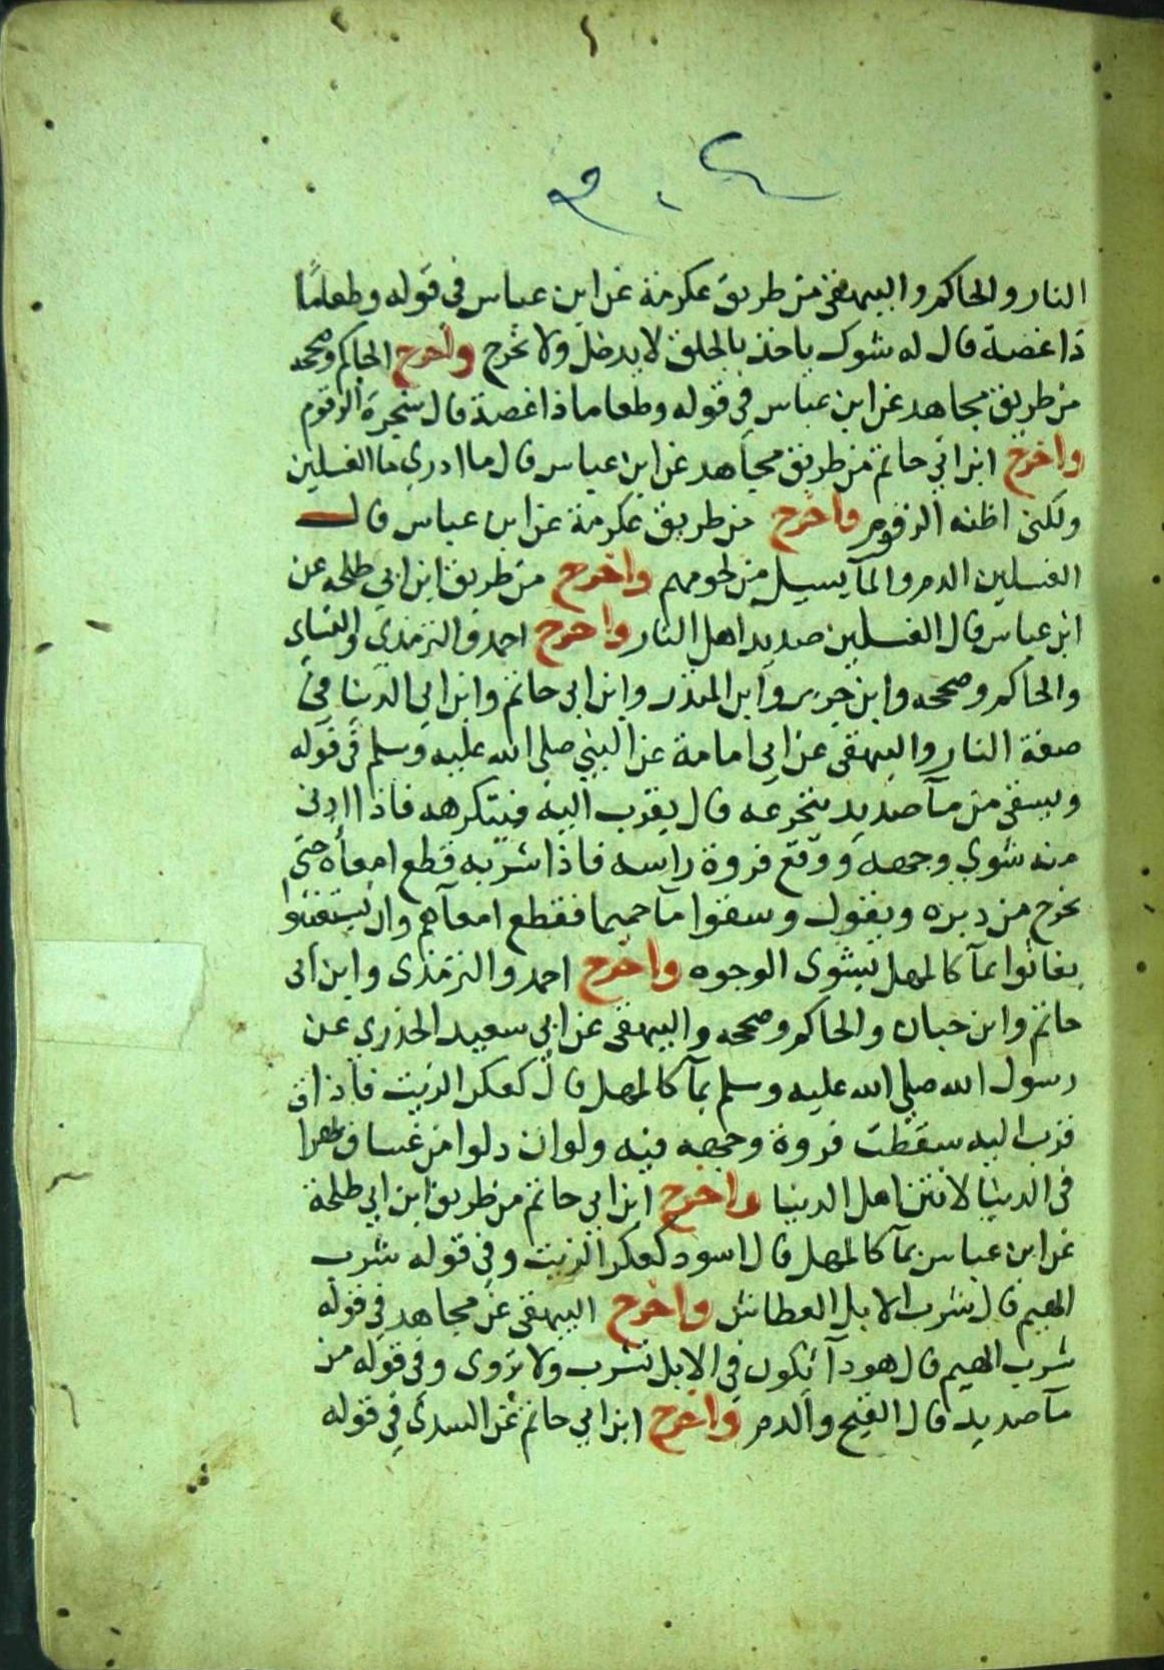 النار والحاكم والبيهقي من طريق عكرمة عن ابن عباس في قوله وطعاما
ذا غصة قال له شوك ياخذ بالحلق لا يدخل ولا يخرج واخرج الحاكم وصححه
من طريق مجاهد عن ابن عباس في قوله وطعاما ذا غصة قال شجرة الزقوم
واخرج ابن ابي حاتم من طريق مجاهد عن ابن عباس قال ما ادري ما الغسلين
ولكن اظنه الزقوم واخرج من طريق عكرمة عن ابن عباس قال
الغسلين الدم والمآ يسيل من لحومهم واخرج من طريق ابن ابي طلحه عن
ابن عباس قال الغسلين صديد اهل النار واخرج احمد والترمذي والنساي
والحاكم وصححه وابن جرير وابن المنذر وابن ابي حاتم وابن ابي الدنيا في
صفة النار والبيهقي عن ابي امامة عن النبي صلى الله عليه وسلم في قوله
ويسقى من مآ صديد يتجرعه قال يقرب اليه فيتكرهه فاذا ادنى
منه شوي وجهه ووقع فروة راسه فاذا شربه قطع امعآه حتى
يخرج من دبره ويقول وسقوا مآ حميما فقطع امعآهم وان يستغيثوا
يغاثوا بمآ كالمهل يشوى الوجوه واخرج احمد والترمذى وابن ابى
حاتم وابن حبان والحاكم وصححه والبيهقى عن ابي سعيد الخدري عن
رسول الله صلى الله عليه وسلم بمآ كالمهل قال كعكر الزيت فاذا
قرب اليه سقطت فروة وجهه فيه ولو ان دلوا من غساق يهرا
في الدنيا لانتن اهل الدنيا واخرج ابن ابي حاتم من طريق ابن ابي طلحة
عن ابن عباس بمآ كالمهل قال اسود كعكر الزيت وفي قوله شرب
الهيم قال شرب الابل العطاش واخرج البيهقى عن مجاهد في قوله
شرب الهيم قال هو دآ يكون في الابل تشرب ولا تروى وفي قوله من
مآ صديد قال القيح والدم واخرج ابن ابي حاتم عن السدي في قوله